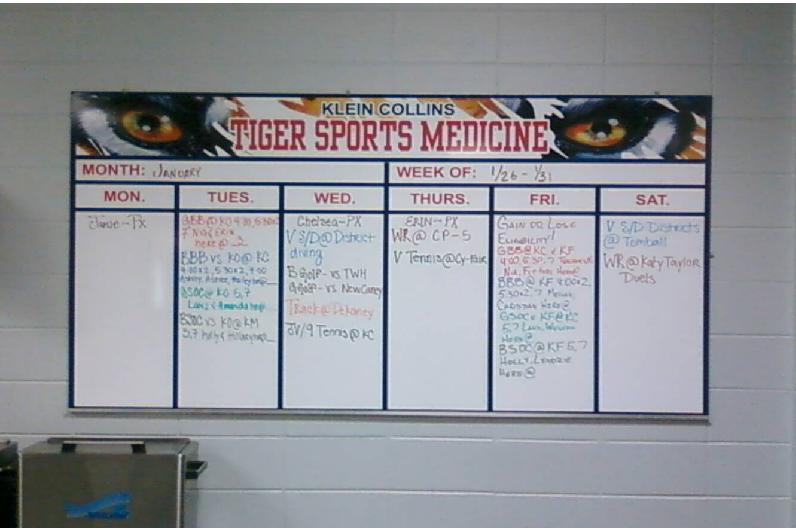 KLEIN COLLINS
TIGER SPORTS MEDICINE
MONTH: JANUARY
WEEK OF: 1/26 - 1/31
MON.
TUES.
WED.
THURS.
FRI.
SAT.
GBB@KO 4:00, 5:30x2
7
here@
BBB vs KO@KC
4:00x2, 5:30x2, 7:00
GSOC@ KO 5,7
BSOC vs KO@KM
5,7 Holly & Hillary
Chelsea-PX
V S/D@District
diving
BGolf - vs TWH
GGolf - vs NewCaney
Track@Dekaney
JV/9 Tennis@KC
ERIN-PX
WR@ CP-5
V Tennis@Cy-Fair
GAIN OR LOSE
ELIGIBILITY!
GBB@KC v KF
4:00, 5:30, 7
BBB@ KF 4:00x2,
5:30x2, 7
HERE@
GSOC v KF@KC
5,7
HERE@
BSOC@KF 5,7
HOLLY,
HERE@
V S/D Districts
@ Tomball
WR@KatyTaylor
Duels